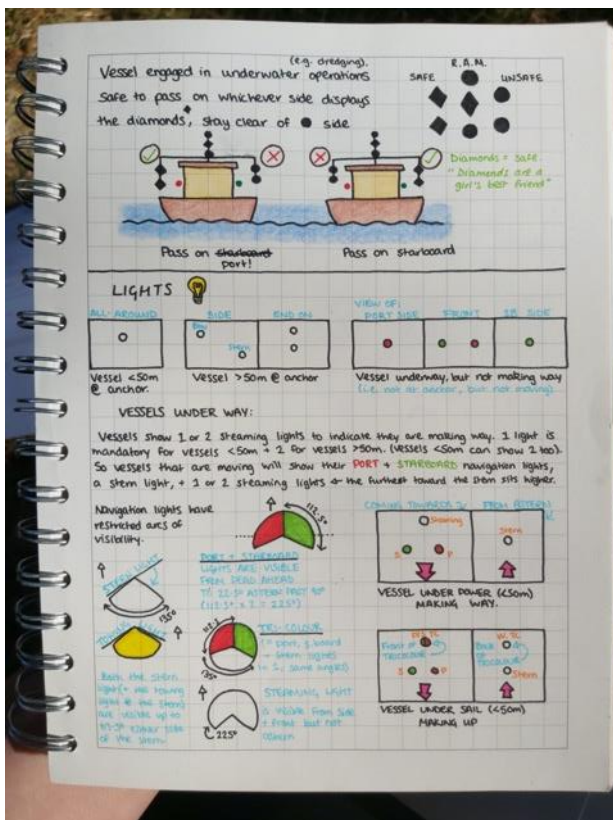 (e.g. dredging).
Vessel engaged in underwater operations
safe to pass on whichever side displays
the diamonds, stay clear of ● side
R.A.M.
SAFE
UNSAFE
Diamonds = safe.
"Diamonds are a
girl's best friend"
Pass on starboard
port!
Pass on starboard
LIGHTS
ALL-AROUND
SIDE
END ON
Bow
Stern
VIEW OF:
PORT SIDE
FRONT
SB SIDE
Vessel <50m
@ anchor.
Vessel >50m @ anchor
Vessel underway, but not making way
(i.e. not at anchor, but not moving).
VESSELS UNDER WAY:
Vessels show 1 or 2 steaming lights to indicate they are making way. 1 light is
mandatory for vessels <50m + 2 for vessels >50m. (vessels <50m can show 2 too).
So vessels that are moving will show their PORT + STARBOARD navigation lights,
a stern light, + 1 or 2 steaming lights the furthest toward the stern sits higher.
Navigation lights have
restricted arcs of
visibility.
112.5°
STERN LIGHT
135°
TOWING LIGHT
Both the stern
light (+ the towing
light @ the stern)
are visible up to
67.5° either side
of the stern
PORT + STARBOARD
LIGHTS ARE VISIBLE
FROM DEAD AHEAD
TO 22.5° ASTERN PAST 90°
(112.5° x 2 = 225°)
112.5
135°
TRI-COLOUR
+ stern lights
in 1, same angles)
STEAMING LIGHT
visible from side
+ front but not
astern
225°
COMING TOWARDS
FROM ASTERN
Steaming
S
P
Stern
VESSEL UNDER POWER (<50m)
MAKING WAY.
Front of
TRICOLOUR
S
P
Back
of
TRICOLOUR
Stern
VESSEL UNDER SAIL (<50m)
MAKING UP